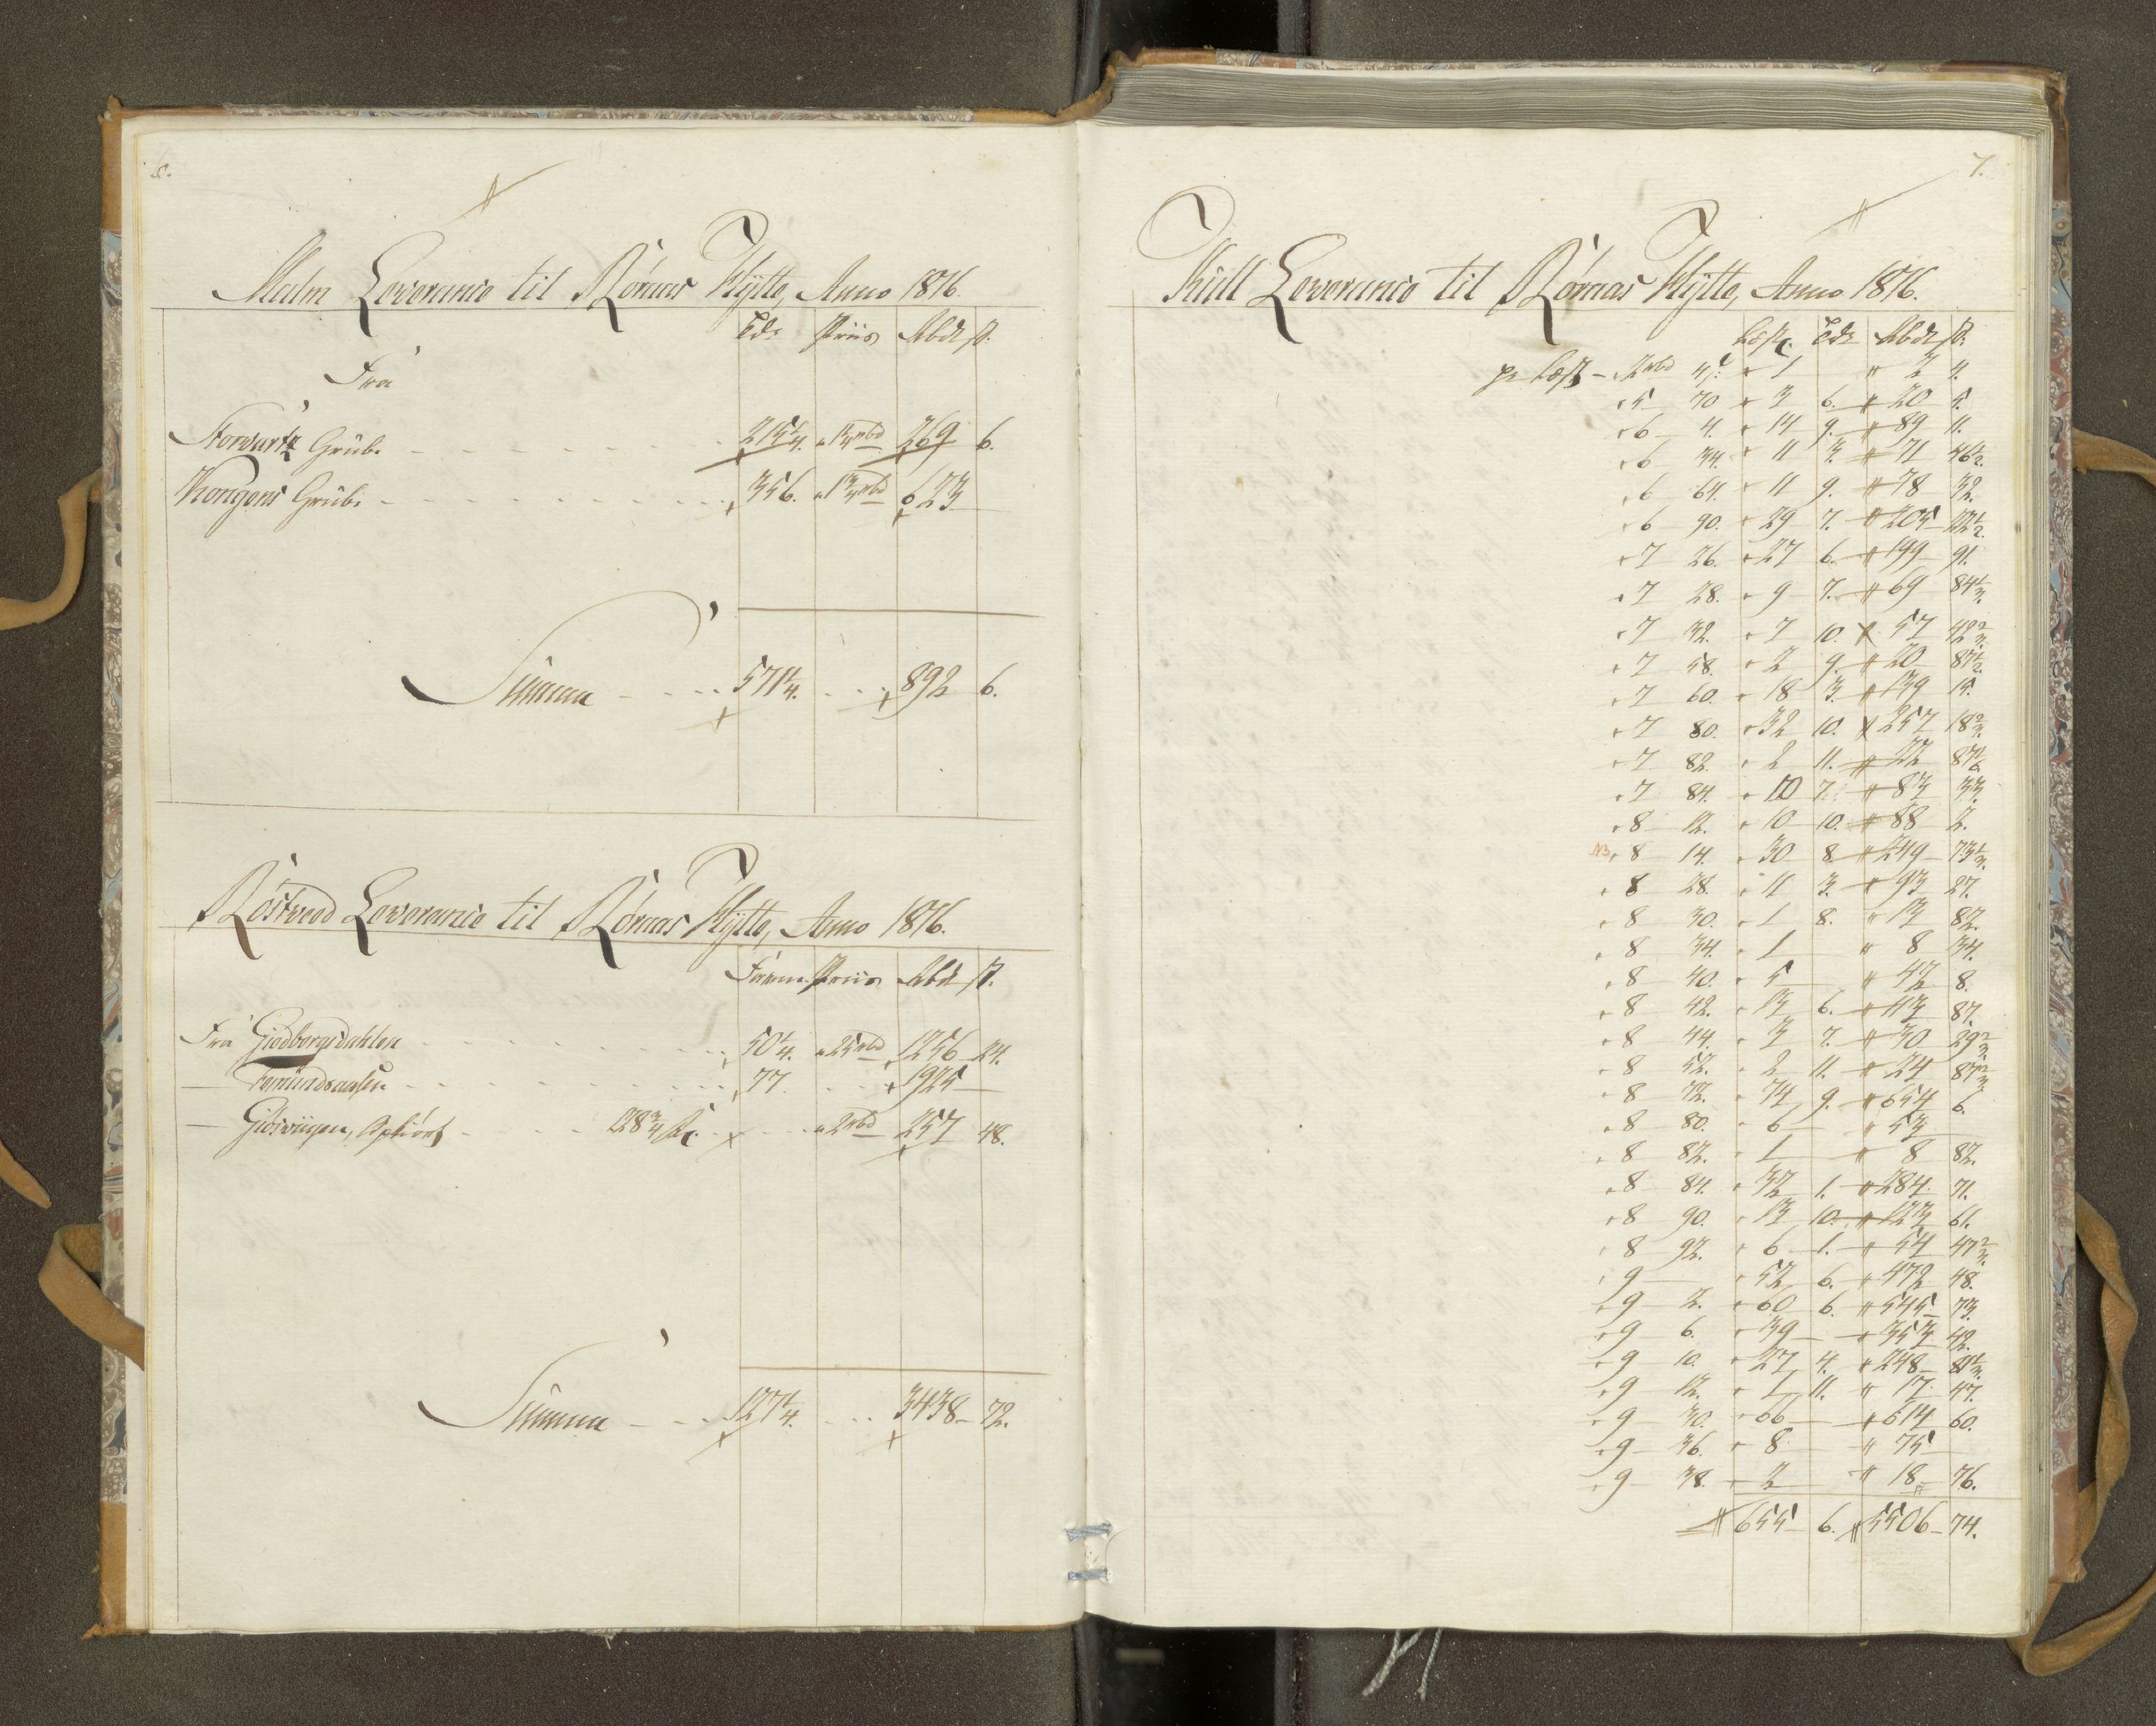 6.
Malm Leverance til Röraas Hÿtte, Anno 1816.
Tdr Priis Rbdr ß.
Fra
Storvartz Grube - - - 215 1/4. a 1 1/4 rbd 269 6.
Kongens Grube - - - 356. a 1 3/4 rbd 623 —
Summa - - - 571 1/4. - - - 892 6.
Röstveed Leverance til Röraas Hÿtte, Anno 1816.
Favne. Priis Rbd ß.
Fra Giödbergsdahlen - - - 50 1/4. a 25 rbd 1256 24.
— Femundsaasen - - - 77. - - - 1925 —
— Gjösviigen, Opkiört - - - 128 3/4 - - - a 2 rbd 257 48.
Summa - - - 127 1/4. - - - 3438 72.
7.
Kull Leverance til Röraas Hÿtte, Anno 1816.
Læst. Tdr Rbdr ß.
pr Læst - 2 rbd 4 ß: 1 " 2 4.
5 70 3 6. 20 5.
6 4. 14 9. 89 11.
6 34. 11 3. 71 46 1/2.
6 64. 11 9. 78 32.
6 90. 29 7. 205 22 1/2.
7 26. 27 6. 199 91.
7 28. 9 7. 69 84 1/3.
7 32. 7 10. 57 42 2/3.
7 58. 2 9. 20 87 1/2.
7 60. 18 3. 139 15.
7 80. 32 10. 257 18 2/3.
7 82. 2 11. 22 87 1/6.
7 84. 10 7. 83 33.
8 12. 10 10. 88 2.
NB 8 14. 30 8. 249 73 1/3.
8 28. 11 3. 93 27.
8 30. 1 8. 13 82.
8 34. 1 " 8 34.
8 40. 5 " 42 8.
8 42. 13 6. 113 87.
8 44. 3 7. 30 29 2/3.
8 52. 2 11. 24 87 2/3.
8 72. 74 9. 654 6.
8 80. 6 " 53 —
8 82. 1 " 8 82.
8 84. 32 1. 284 71.
8 90. 13 10. 123 61.
8 92. 6 1. 54 47 2/3.
9 — 52 6. 472 48.
9 2. 60 6. 545 73.
9 6. 39 — 353 42.
9 10. 27 4. 248 81 1/3.
9 12. 1 11. 17 47.
9 30. 66 — 614 60.
9 36. 8 " 75 —
9 38. 2 " 18 76.
655 6. 5506 74.